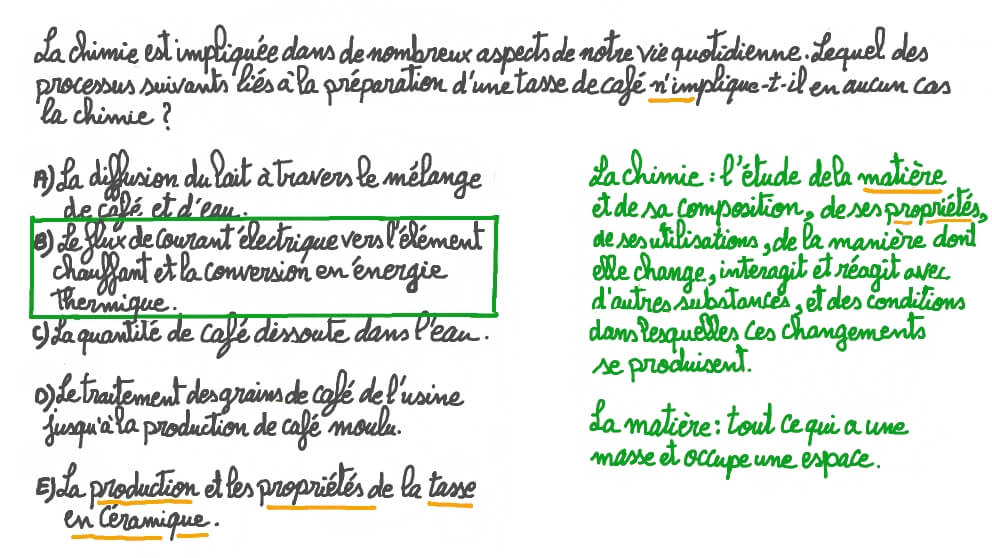 La chimie est impliquée dans de nombreux aspects de notre vie quotidienne. Lequel des
processus suivants liés à la préparation d'une tasse de café n'implique-t-il en aucun cas
la chimie ?
A) La diffusion du lait à travers le mélange
de café et d'eau.
B) Le flux de courant électrique vers l'élément
chauffant et la conversion en énergie
thermique.
C) La quantité de café dissoute dans l'eau.
D) Le traitement des grains de café de l'usine
jusqu'à la production de café moulu.
E) La production et les propriétés de la tasse
en céramique.
La chimie : l'étude de la matière
et de sa composition, de ses propriétés,
de ses utilisations, de la manière dont
elle change, interagit et réagit avec
d'autres substances, et des conditions
dans lesquelles ces changements
se produisent.
La matière : tout ce qui a une
masse et occupe une espace.